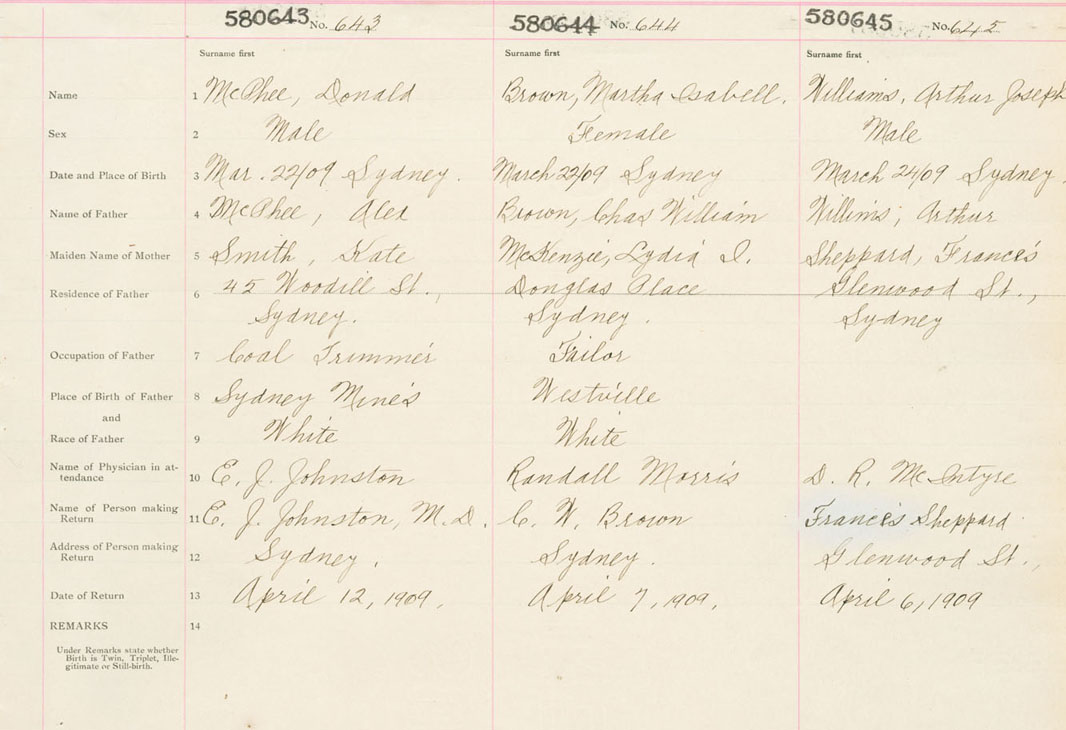 580643 No. 643 580644 No. 644 580645 No. 645
Surname first Surname first Surname first
Name 1 McPhee, Donald Brown, Martha Isabell. Williams, Arthur Joseph
Sex 2 Male Female Male
Date and Place of Birth 3 Mar. 22/09 Sydney. March 22/09 Sydney March 24/09 Sydney.
Name of Father 4 McPhee, Alex Brown, Chas William Willims, Arthur
Maiden Name of Mother 5 Smith, Kate McKenzie, Lydia I. Sheppard, Frances
Residence of Father 6 45 Woodill St., Douglas Place Glenwood St.,
Sydney. Sydney. Sydney
Occupation of Father 7 Coal Trimmer Tailor
Place of Birth of Father 8 Sydney Mines Westville
and
Race of Father 9 White White
Name of Physician in at-
tendance 10 E. J. Johnston Randall Morris D. R. McIntyre
Name of Person making
Return 11 E. J. Johnston, M.D. C. W. Brown Frances Sheppard
Address of Person making
Return 12 Sydney. Sydney. Glenwood St.,
Date of Return 13 April 12, 1909. April 7, 1909. April 6, 1909
REMARKS 14
Under Remarks state whether
Birth is Twin, Triplet, Ille-
gitimate or Still-birth.